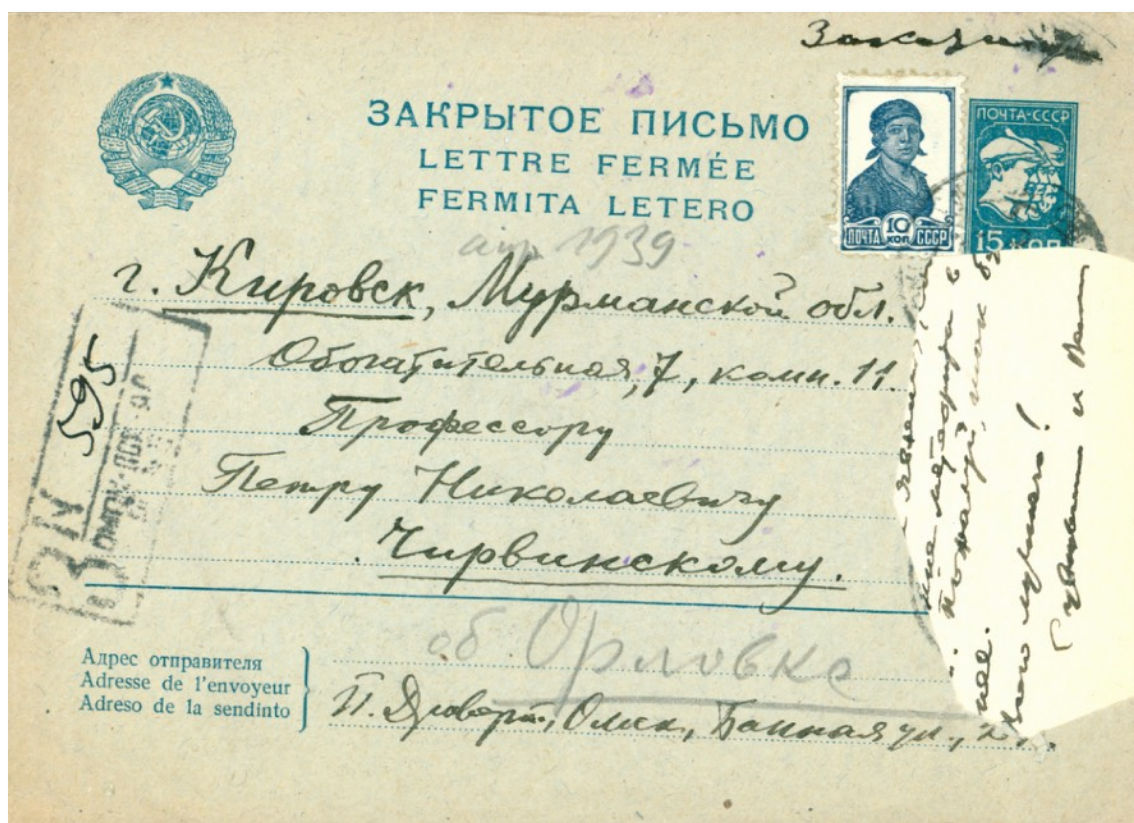 Заказное
ЗАКРЫТОЕ ПИСЬМО
LETTRE FERMÉE
FERMITA LETERO
ПОЧТА 10 КОП СССР
ПОЧТА-СССР
15 КОП
апр 1939
г. Кировск, Мурманской обл.
Обогатительная, 7, комн. 11.
Профессору
Петру Николаевичу
Чирвинскому.
595
ЗК
об. Орловке
Адрес отправителя
Adresse de l'envoyeur
Adreso de la sendinto
П. Омск, Банная ул.,
метафора в
Пожалуй, так
ше.
и Вам